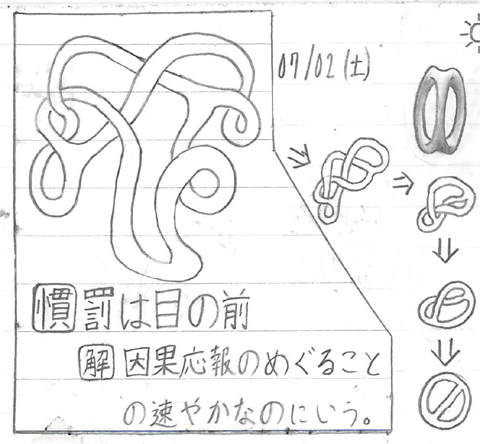 07/02(土)
慣 罰は目の前
解 因果応報のめぐること
の速やかなのにいう。